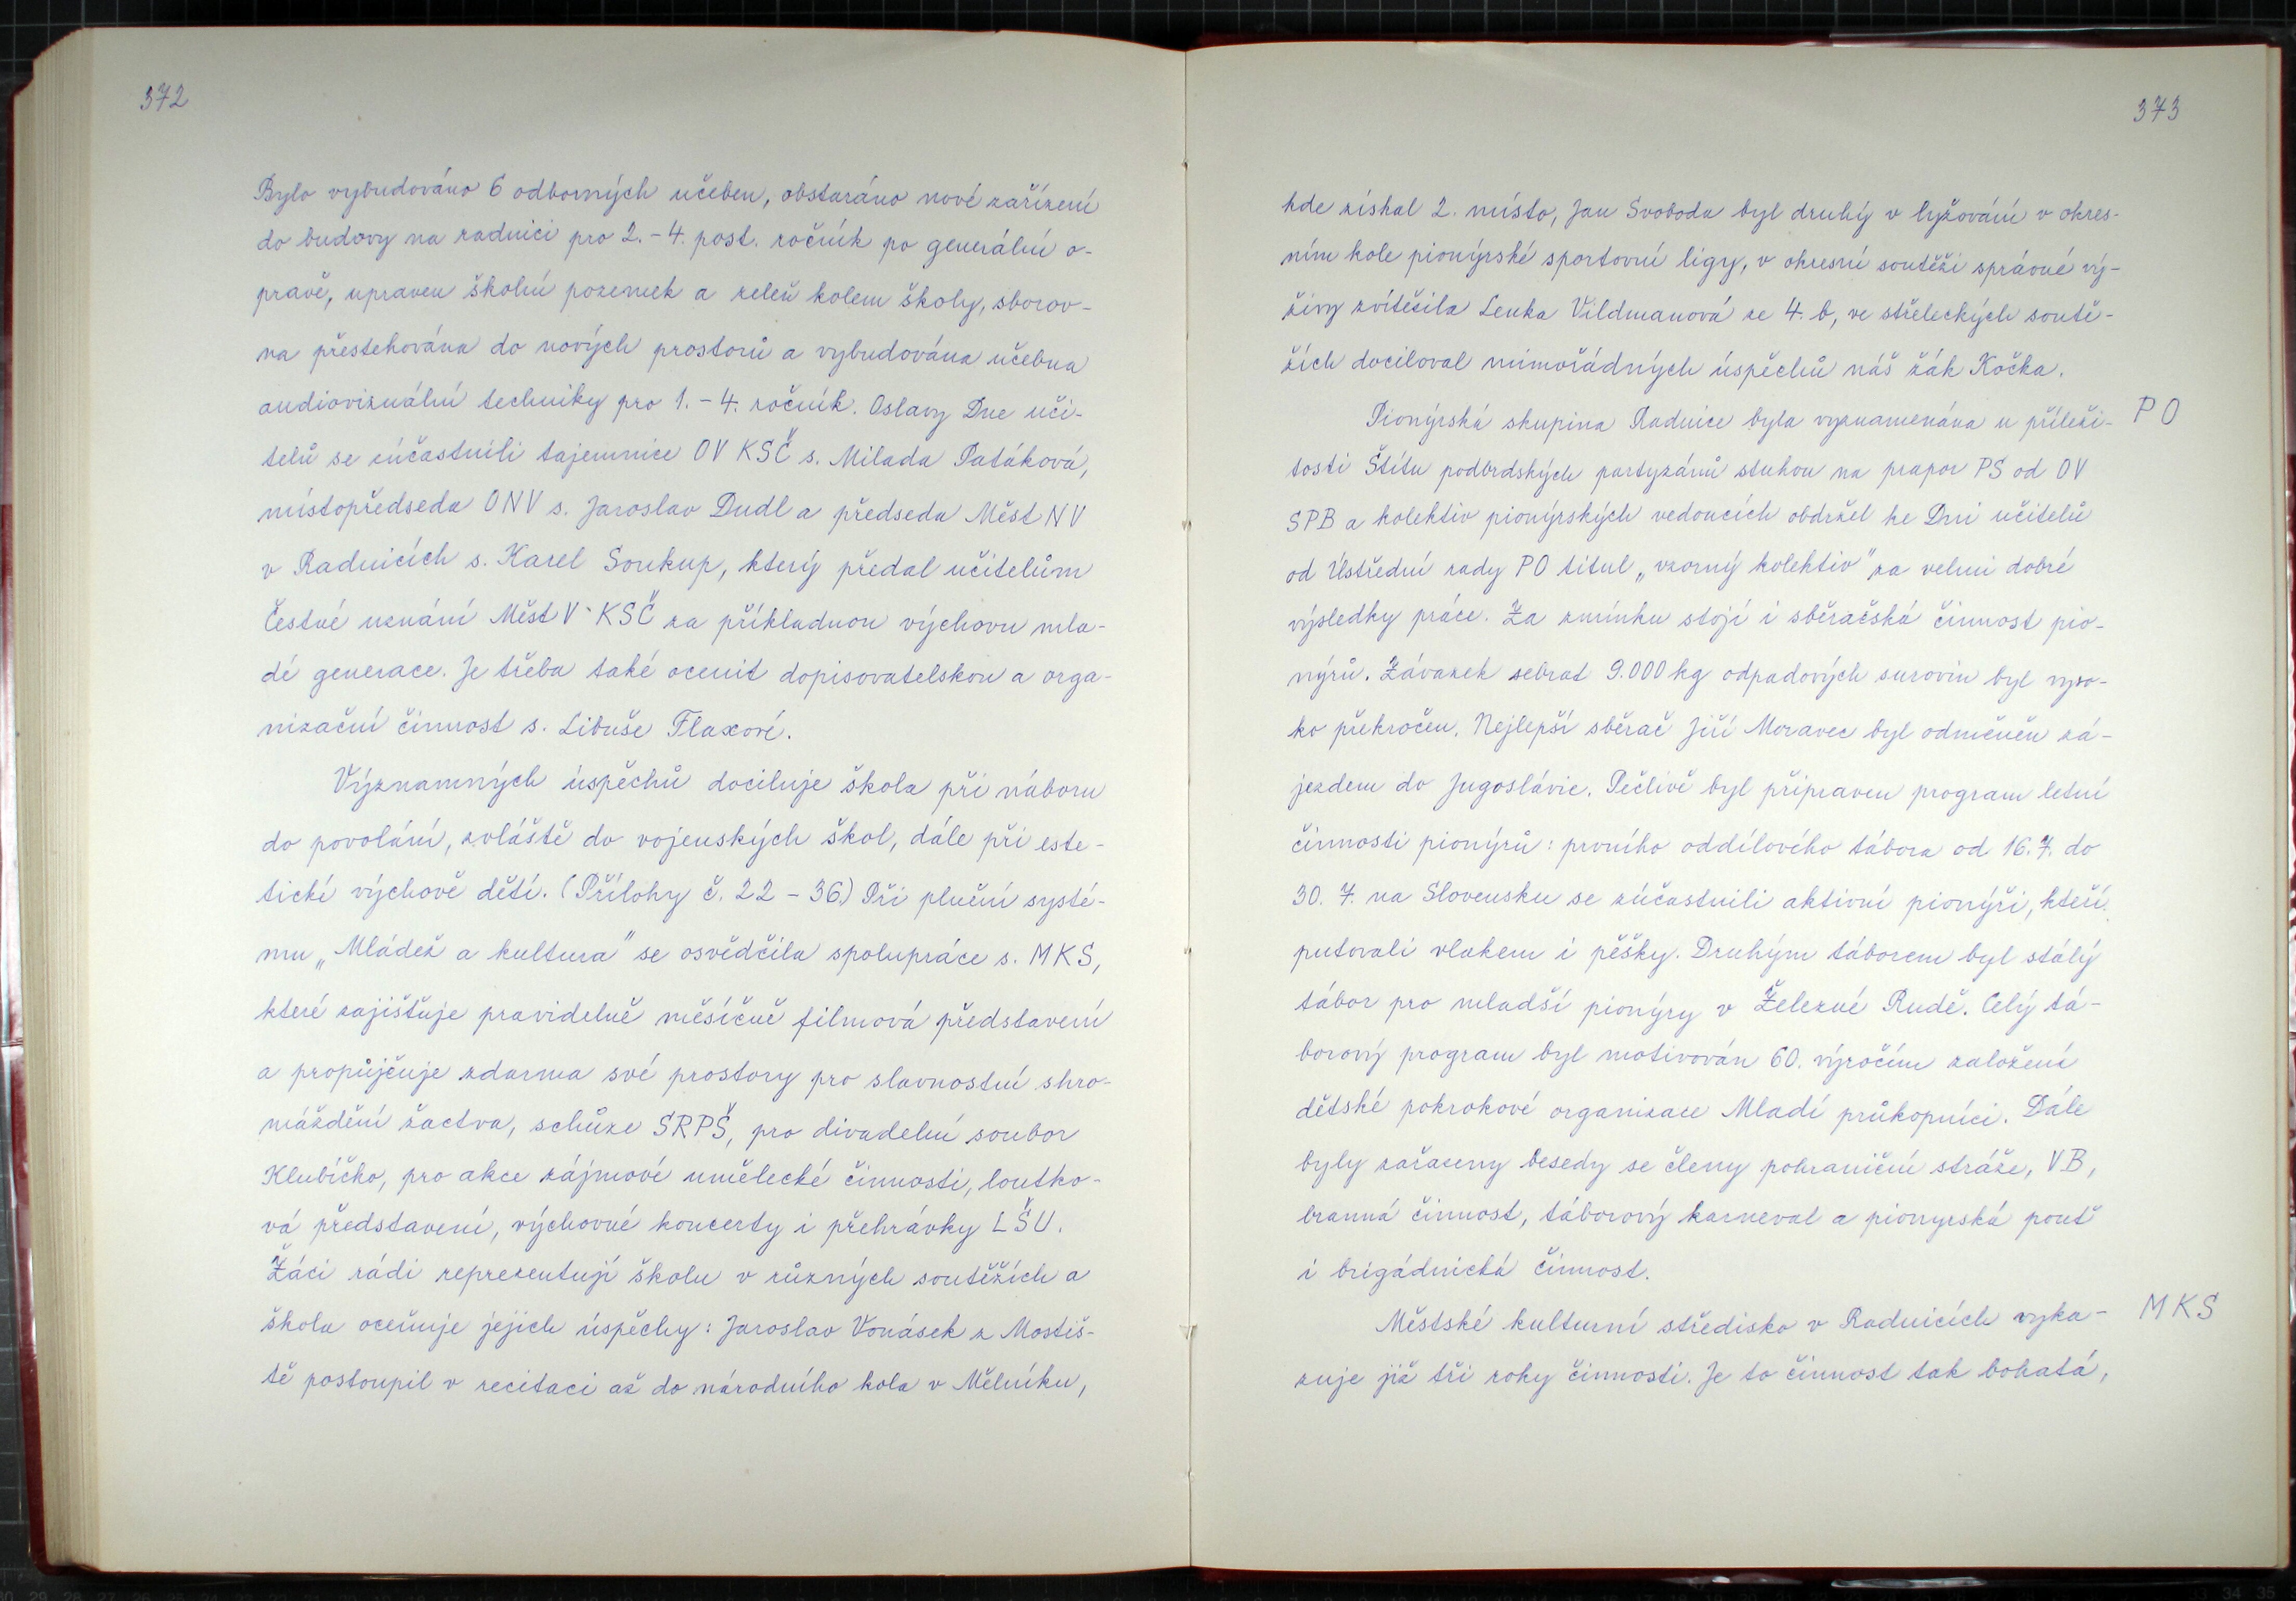 372
Bylo vybudováno 6 odborných učeben, obstaráno nové zařízení
do budovy na radnici pro 2.-4. post. ročník po generální o-
pravě, upraven školní pozemek a zeleň kolem školy, sborov-
na přestěhována do nových prostorů a vybudována učebna
audiovizuální techniky pro 1.-4. ročník. Oslavy Dne uči-
telů se zúčastnili tajemnice OV KSČ s. Milada Patáková,
místopředseda ONV s. Jaroslav Dudl a předseda Měst NV
v Radnicích s. Karel Soukup, který předal učitelům
Čestné uznání Měst V KSČ za příkladnou výchovu mla-
dé generace. Je třeba také ocenit dopisovatelskou a orga-
nizační činnost s. Libuše Flaxové.
Významných úspěchů dociluje škola při náboru
do povolání, zvláště do vojenských škol, dále při este-
tické výchově dětí. (Přílohy č. 22 - 36) Při plnění systé-
mu „Mládež a kultura" se osvědčila spolupráce s. MKS,
které zajišťuje pravidelně měsíčně filmová představení
a propůjčuje zdarma své prostory pro slavnostní shro-
máždění žactva, schůze SRPŠ, pro divadelní soubor
Klubíčko, pro akce zájmové umělecké činnosti, loutko-
vá představení, výchovné koncerty i přehrávky LŠU.
Žáci rádi reprezentují školu v různých soutěžích a
škola oceňuje jejich úspěchy: Jaroslav Vonásek z Mostiš-
tě postoupil v recitaci až do národního kola v Mělníku,
373
kde získal 2. místo, Jan Svoboda byl druhý v lyžování v okres-
ním kole pionýrské sportovní ligy, v okresní soutěži správné vý-
živy zvítězila Lenka Vildmanová ze 4. b, ve střeleckých soutě-
žích dociloval mimořádných úspěchů náš žák Kočka.
Pionýrská skupina Radnice byla vyznamenána u příleži- PO
tosti Štítu podbrdských partyzánů stuhou na prapor PS od OV
SPB a kolektiv pionýrských vedoucích obdržel ke Dni učitelů
od Ústřední rady PO titul „vzorný kolektiv" za velmi dobré
výsledky práce. Za zmínku stojí i sběračská činnost pio-
nýrů. Závazek sebrat 9.000 kg odpadových surovin byl vyso-
ko překročen. Nejlepší sběrač Jiří Moravec byl odměněn zá-
jezdem do Jugoslávie. Pečlivě byl připraven program letní
činnosti pionýrů: prvního oddílového tábora od 16. 7. do
30. 7. na Slovensku se zúčastnili aktivní pionýři, kteří
putovali vlakem i pěšky. Druhým táborem byl stálý
tábor pro mladší pionýry v Železné Rudě. Celý tá-
borový program byl motivován 60. výročím založení
dětské pokrokové organizace Mladí průkopníci. Dále
byly zařazeny besedy se členy pohraniční stráže, VB,
branná činnost, táborový karneval a pionyrská pouť
i brigádnická činnost.
Městské kulturní středisko v Radnicích vyka- MKS
zuje již tři roky činnosti. Je to činnost tak bohatá,